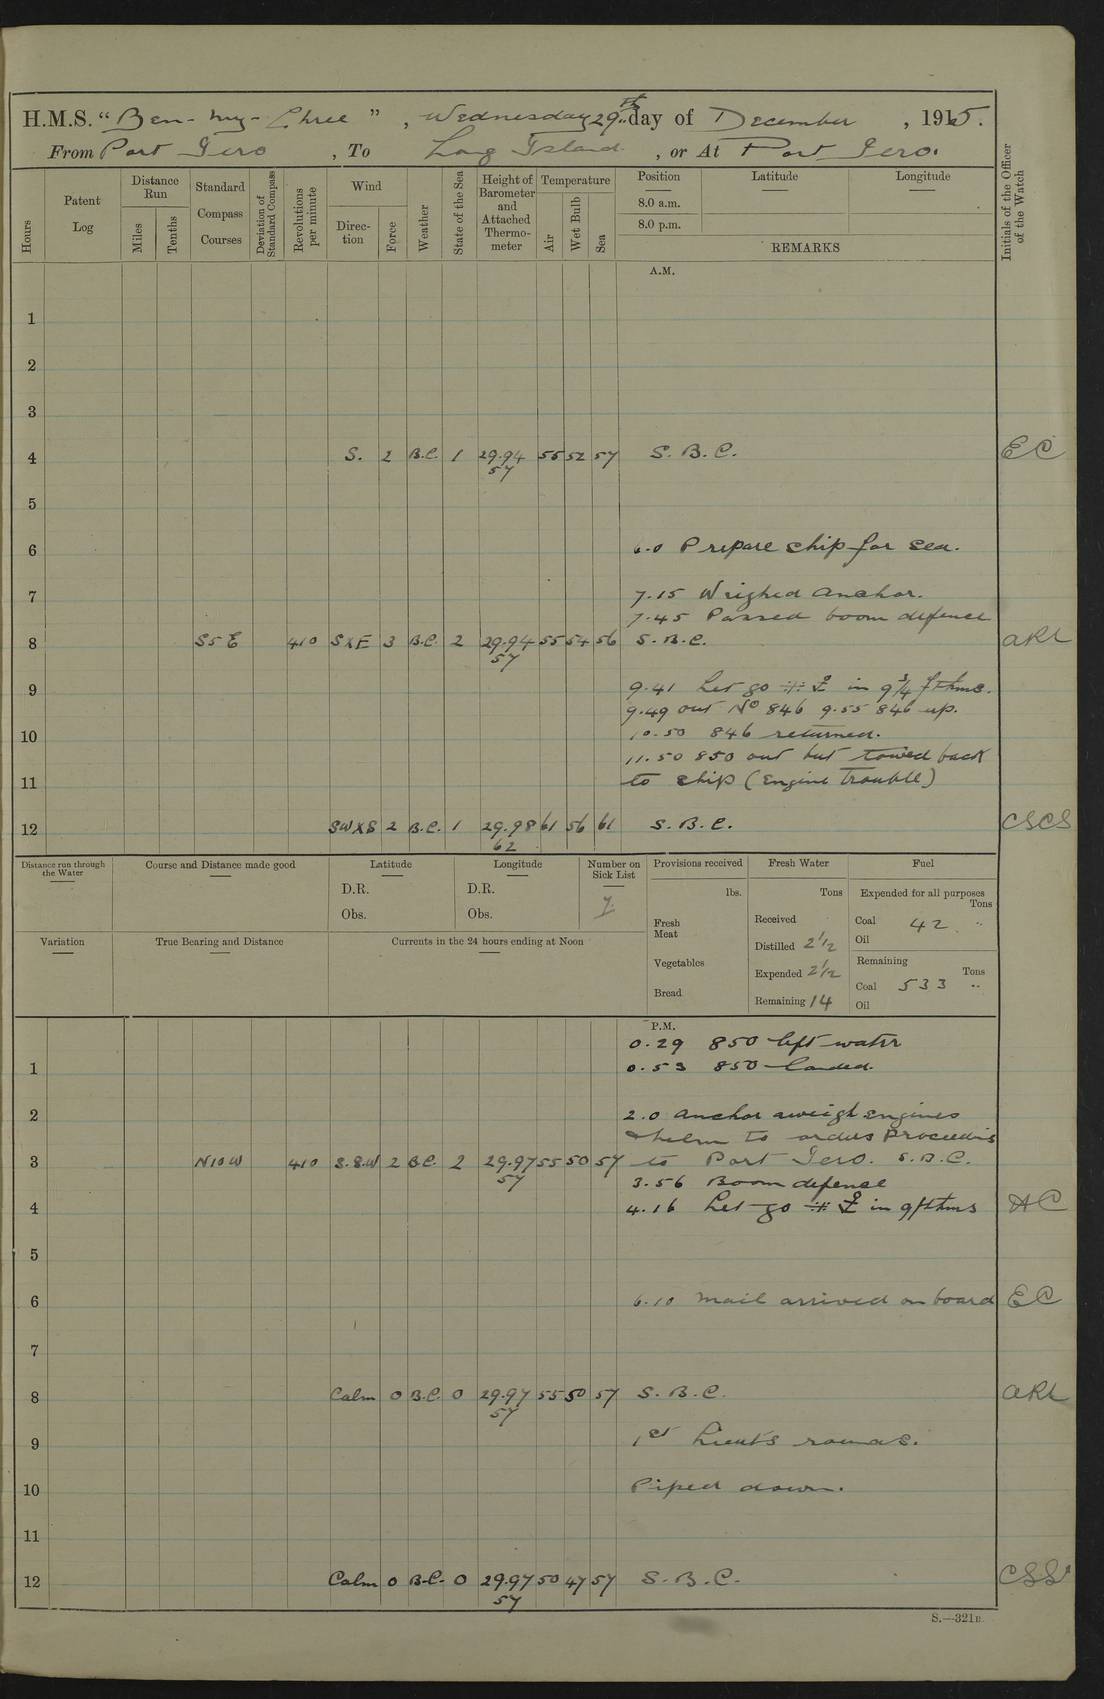 H.M.S. "Ben-my-Chree", Wednesday 29th day of December, 1915.
From Port Iero, To Long Island, or At Port Iero.
Hours
Patent Log
Distance Run
Miles
Tenths
Standard Compass Courses
Deviation of Standard Compass
Revolutions per minute
Wind
Direction
Force
Weather
State of the Sea
Height of Barometer and Attached Thermometer
Temperature
Air
Wet Bulb
Sea
Position
8.0 a.m.
8.0 p.m.
Latitude
Longitude
REMARKS
Initials of the Officer of the Watch
A.M.
1
2
3
4 S. 2 B.C. 1 29.94 55 52 57 S.B.C. EC
57
5
6 6.0 Prepare ship for sea.
7 7.15 Weighed anchor.
7.45 Passed boom defence
8 S5E 410 SXE 3 B.C. 2 29.94 55 54 56 S.B.C. ARL
57
9 9.41 Let go in 9 3/4 fthms.
9.49 out No 846 9.55 846 up.
10 10.50 846 returned.
11.50 850 out but towed back
11 to ship (Engine trouble)
12 SWXS 2 B.C. 1 29.98 61 56 61 S.B.C.
62
Distance run through the Water
Course and Distance made good
Latitude
D.R.
Obs.
Longitude
D.R.
Obs.
Number on Sick List
7.
Provisions received
lbs.
Fresh Meat
Vegetables
Bread
Fresh Water
Tons
Received
Distilled 2 1/2
Expended 2 1/2
Remaining 14
Fuel
Expended for all purposes
Tons
Coal 42 "
Oil
Remaining
Tons
Coal 533 "
Oil
Variation
True Bearing and Distance
Currents in the 24 hours ending at Noon
P.M.
0.29 850 left water
1 0.53 850 landed.
2 2.0 anchor aweigh engines
& helm to orders Proceeding
3 N10W 410 S.S.W 2 B.C. 2 29.97 55 50 57 to Port Iero. S.B.C.
57
3.56 Boom defence
4 4.16 Let go in 9 fthms AC
5
6 6.10 Mail arrived on board EC
7
8 Calm 0 B.C. 0 29.97 55 50 57 S.B.C. ARL
57
9 1st Lieuts rounds.
10 Piped down.
11
12 Calm 0 B.C. 0 29.97 50 47 57 S.B.C.
57
S.—321B.